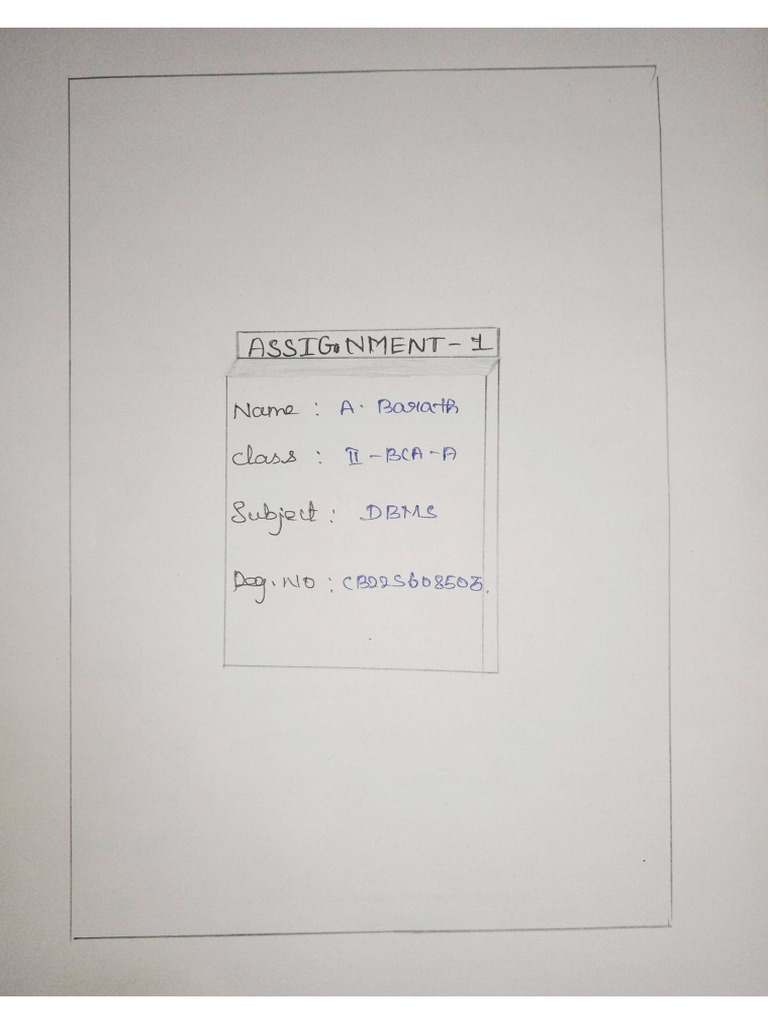 ASSIGNMENT - 1
Name : A. Barath
Class : II - BCA - A
Subject : DBMS
Reg. No : CB22S608505.